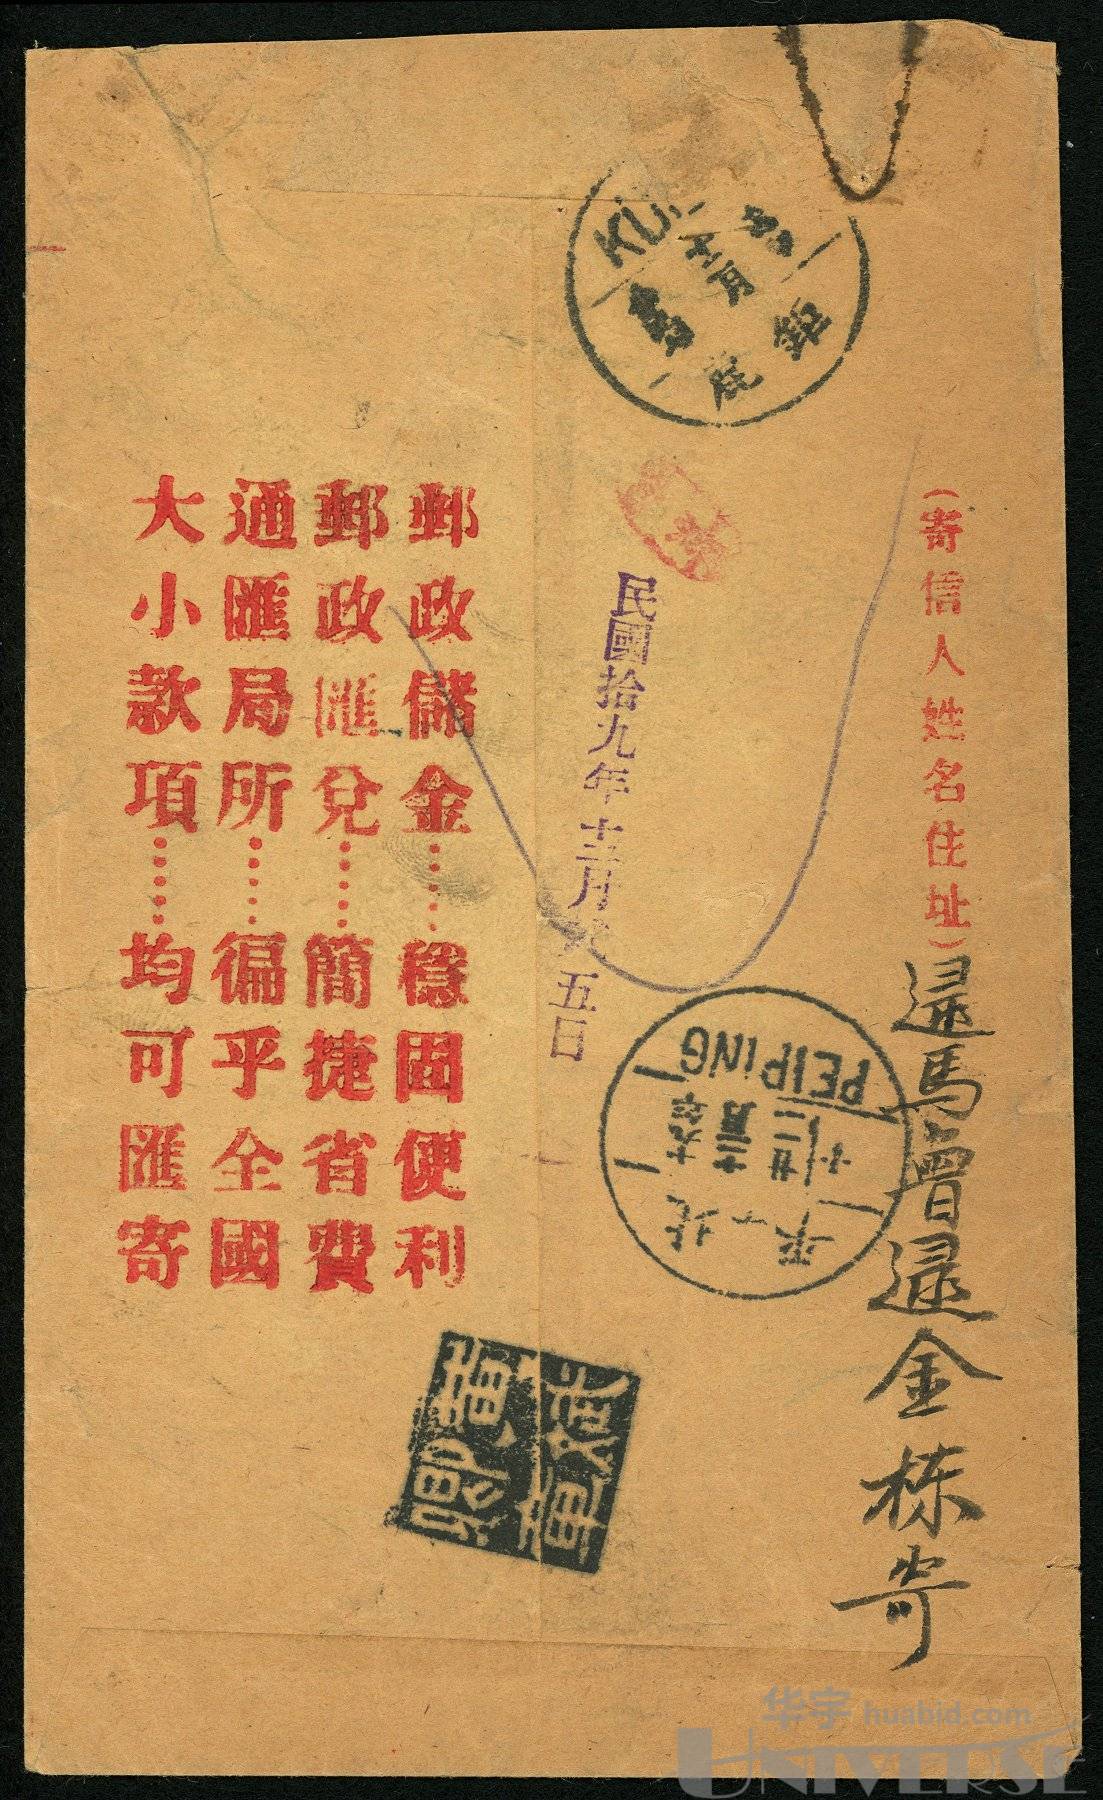 (寄信人姓名住址)
馬曾
金栋寄
民國拾九年十二月
五日
鉅鹿
KU
PEIPING
十九年
十二月
廿二
北平
郵政儲金……穩固便利
郵政匯兌……簡捷省費
通匯局所……徧乎全國
大小款項……均可匯寄
华宇 huabid.com
UNIVERSE